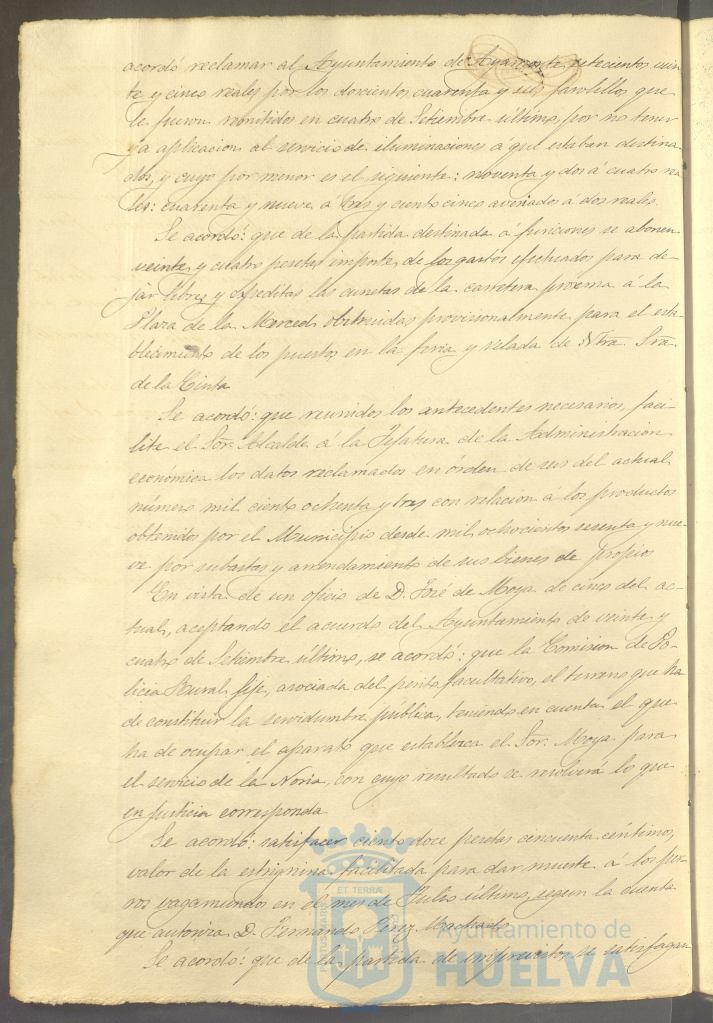 acordó reclamar al Ayuntamiento de Ayamonte setecientos vein-
te y cinco reales por los doscientos cuarenta y seis farolillos que
le fueron remitidos en cuatro de Setiembre último, por no tener
ya aplicacion al servicio de iluminaciones á que estaban destina-
dos, y cuyo por menor es el siguiente: noventa y dos á cuatro rea-
les: cuarenta y nueve, á tres y ciento cinco averiados á dos reales.
Se acordó: que de la partida destinada á funciones se abonen
veinte y cuatro pesetas importe de los gastos efectuados para de-
jar libres y espeditas las cunetas de la carretera proxima á la
Plaza de la Merced obstruidas provisionalmente para el esta-
blecimiento de los puestos en la feria y velada de Ntra. Sra.
de la Cinta
Se acordó: que reunidos los antecedentes necesarios, faci-
lite el Sor. Alcalde á la Jefatura de la Administracion
económica los datos reclamados en órden de seis del actual
número mil ciento ochenta y tres con relacion á los productos
obtenidos por el Municipio desde mil ochocientos sesenta y nue-
ve por subastas y arrendamiento de sus bienes de propios
En vista de un oficio de D. José de Moya de cinco del ac-
tual, aceptando el acuerdo del Ayuntamiento de veinte y
cuatro de Setiembre último, se acordó: que la Comision de Po-
licia Rural fije, asociada del perito facultativo, el terreno que ha
de constituir la servidumbre pública, teniendo en cuenta el que
ha de ocupar el aparato que establezca el Sor. Moya para
el servicio de la Noria, con cuyo resultado se resolverá lo que
en justicia corresponda
Se acordó: satisfacer ciento doce pesetas cincuenta céntimos,
valor de la estrignina facilitada para dar muerte á los per-
ros vagamundos en el mes de Julio último, segun la cuenta
que autoriza D. Fernando Perez Machado
Se acordo: que de la partida de imprevistos se satisfagan
ET TERRÆ
Ayuntamiento de
HUELVA